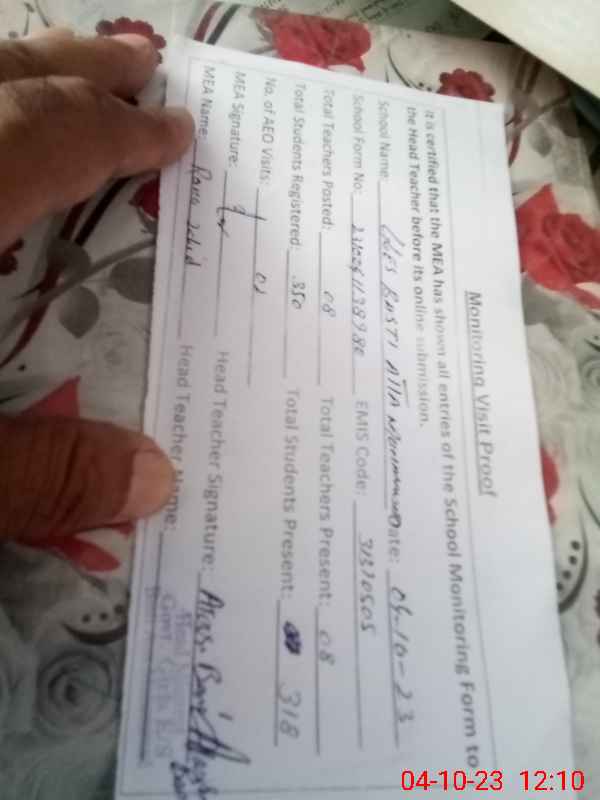 Monitoring Visit Proof
It is certified that the MEA has shown all entries of the School Monitoring Form to
the Head Teacher before its online submission.
School Name: BASTI ATTA Date: 04-10-23
School Form No: EMIS Code: 31310505
Total Teachers Posted: 08 Total Teachers Present: 08
Total Students Registered: 350 Total Students Present: 318
No. of AEO Visits: 01
MEA Signature: Head Teacher Signature:
MEA Name: Rana Head Teacher Name:
Head
Govt. Girls E/S
04-10-23 12:10